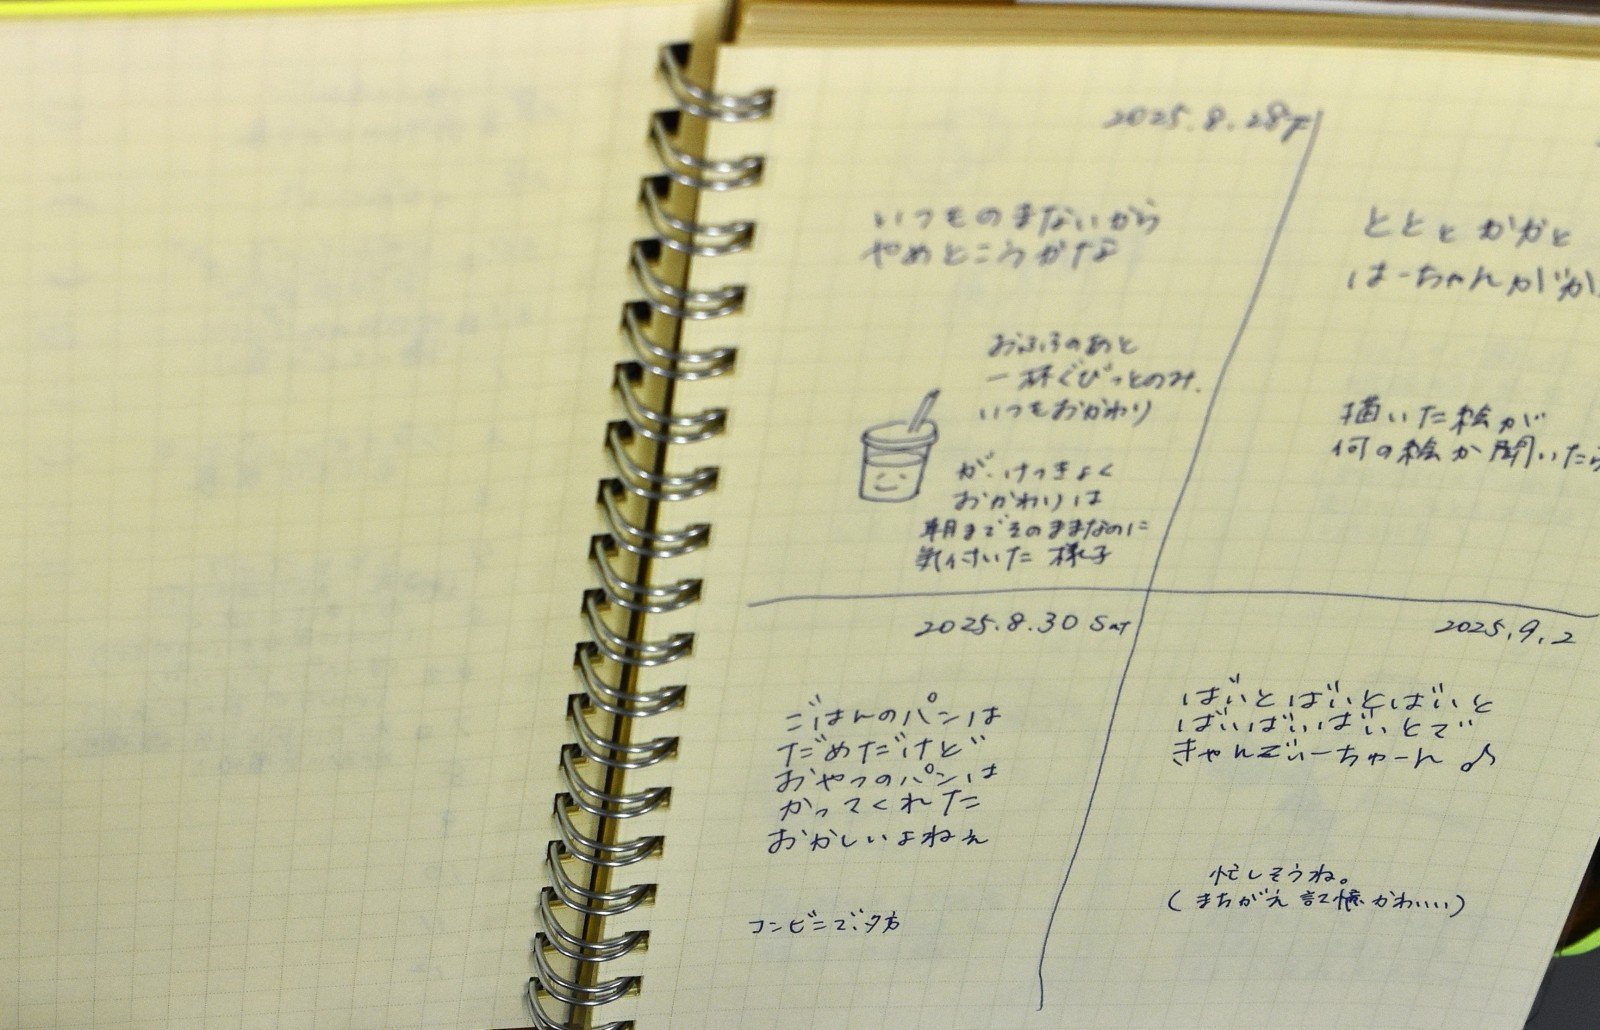 2025.8.28
いつものまないから
やめところかな
おふろのあと
一杯ぐびっとのみ、
いつもおかわり
が、けっきょく
おかわりは
朝までそのままなのに
気付いた様子
ととと かかと
ばーちゃんがか
描いた絵が
何の絵か聞いたら
2025.8.30 Sat
ごはんのパンは
だめだけど
おやつのパンは
かってくれた
おかしいよねぇ
コンビニで夕方
2025.9.2
ばいとばいとばいと
ばいばいばいとで
きゃんでぃーちゃーん♪
忙しそうね。
(まちがえ記憶かわいい)